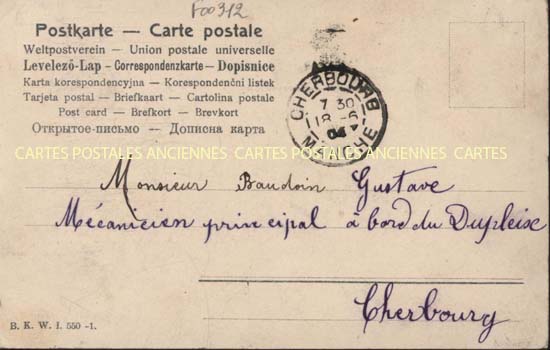 F00312
Postkarte — Carte postale
Weltpostverein — Union postale universelle
Levelező-Lap - Correspondenzkarte - Dopisnice
Karta korespondencyjna — Korespondenční listek
Tarjeta postal — Briefkaart — Cartolina postale
Post card — Brefkort — Brevkort
Открытое-письмо — Дописна карта
CHERBOURG
7 30
18 - 6
04
MANCHE
CARTES POSTALES ANCIENNES CARTES POSTALES ANCIENNES CARTES
Monsieur Baudoin Gustave
Mécanicien principal à bord du Dupleix
Cherbourg
B. K. W. I. 550 -1.